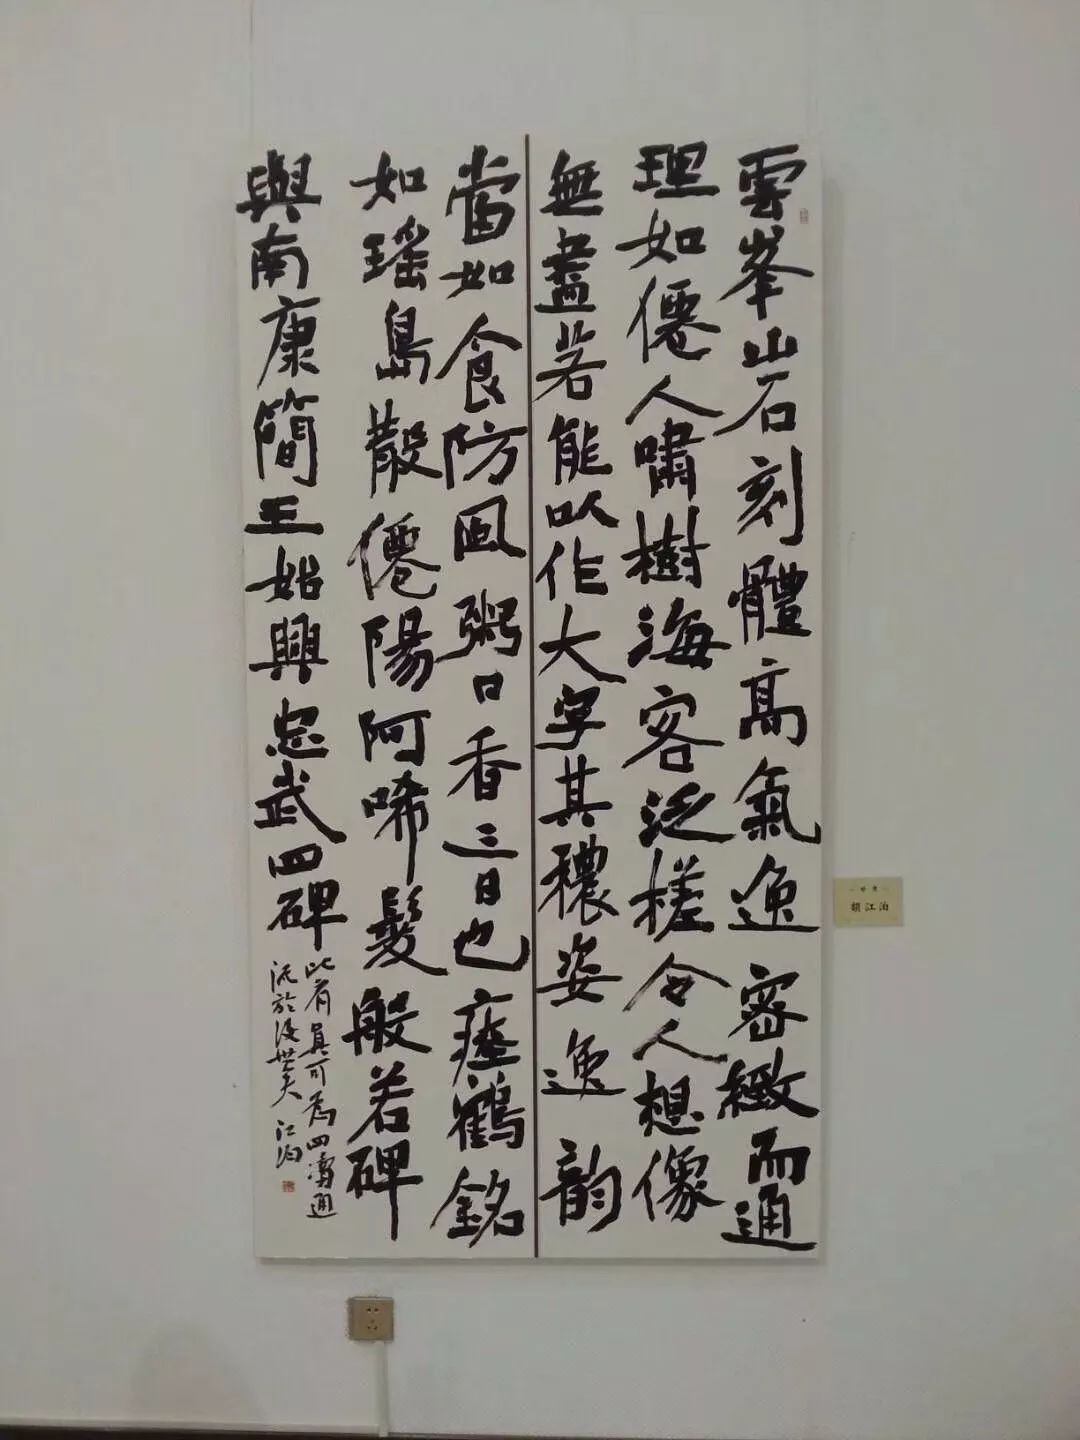 雲峯山石刻體高氣逸密緻而通
理如僊人嘯樹海客泛槎令人想像
無盡若能以作大字其穠姿逸韵
當如食防風粥口香三日也瘞鶴銘
如瑶島散僊陽阿晞髮般若碑
與南康簡王始興忠武四碑
此前真可為四瀆通
流於後世矣 江泊
顏江泊